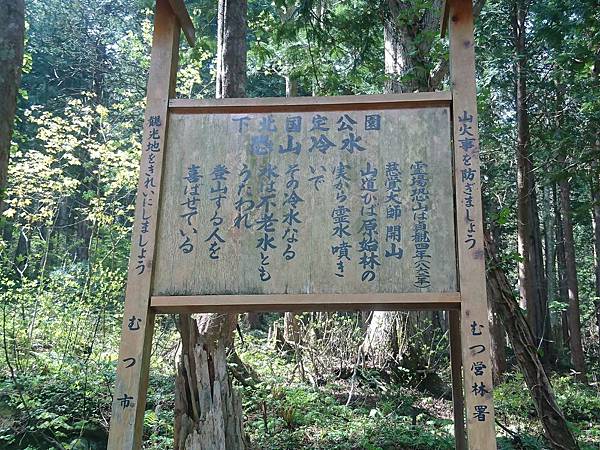 下北国定公園
恐山冷水
霊場恐山は貞観四年(八六二年)
慈覚大師 開山
山道ひは原始林の
実から霊水 噴き
いで
その冷水なる
水は不老水とも
うたわれ
登山する人を
喜ばせている
山火事を防ぎましょう
むつ営林署
観光地をきれいにしましょう
むつ市